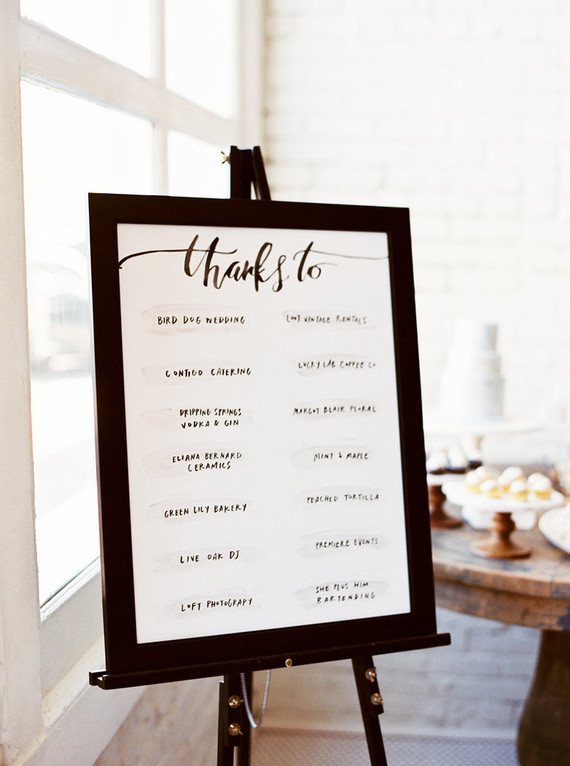 thanks to
BIRD DOG WEDDING
CONTIGO CATERING
DRIPPING SPRINGS
VODKA & GIN
ELIANA BERNARD
CERAMICS
GREEN LILY BAKERY
LIVE OAK DJ
LOFT PHOTOGRAPY
LOOT VINTAGE RENTALS
LUCKY LAB COFFEE CO
MARGOT BLAIR FLORAL
MINT & MAPLE
PEACHED TORTILLA
PREMIERE EVENTS
SHE PLUS HIM
BARTENDING